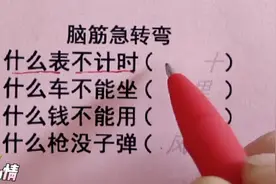 脑筋急转弯
什么表不计时( 十
什么车不能坐(
什么钱不能用(
什么枪没子弹( 风
情